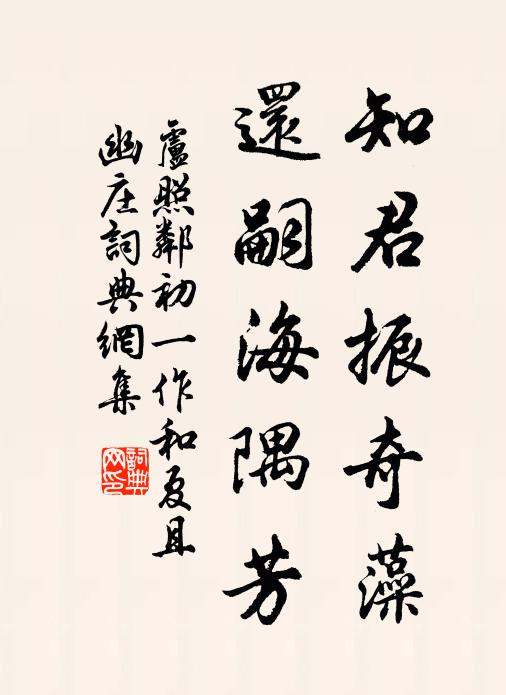 知君振奇藻
還嗣海隅芳
盧照鄰初一作和夏且
幽庄詞典網集
詞典网印